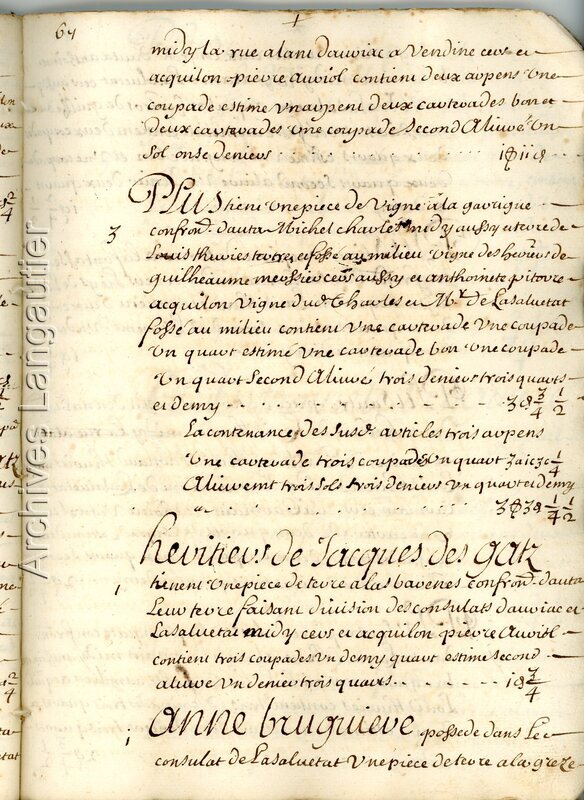 64
midy la rue alant dauriac a Vendine cers et
acquilon pierre auriol contient deux arpens une
coupade estime un arpent deux carterades bon et
deux carterades une coupade second Aliuré un
sol onse deniers
Plus tient une piece de vigne a la garrigue
3 confron.t dauta Michel charles midy aussy et terre de
Louis
fossé au milieu vigne des heritie.rs de
guilheaume cers aussy et anthoinete pitorre
acquilon vigne dud. Charles et M.r de Lasaluetat
fossé au milieu contient une carterade une coupade
un quart estimé une carterade bon une coupade
un quart second Aliuré trois deniers trois quarts
et demy 3 d 3/4 1/2
La contenance des susd. articles trois arpens
une carterade trois coupades un quart 3a 1c 3c 1/4
Aliurem.t trois sols trois deniers un quart et demy
3 d 1/4 1/2
heritiers de Jacques des gatz
1 tienent une piece de terre a las barenes confron.t dauta
Leur terre faisant division des consulats dauriac et
Lasaluetat midy cers et acquilon pierre Auriol
contient trois coupades un demy quart estime second
aliure un denier trois quarts 1 d 3/4
1 anne bruguiere possede dans Le
consulat de Lasaluetat une piece de terre a la greze
Archives Langautier